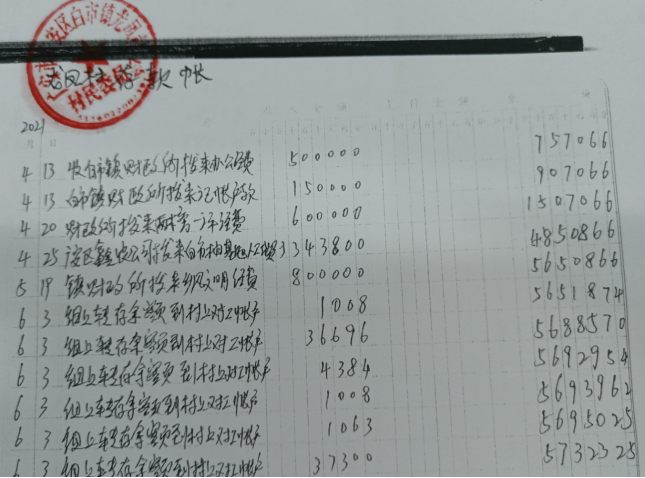 安区白市镇龙凤
村民委员
龙凤村存款帐
收入金额 支付金额 余额
2021
月 日
757066
4 13 收白市镇财政所拨来办公经费 500000 907066
4 13 白市镇财政所拨来记帐户款 150000 1507066
4 20 财政所拨来两 一年经费 600000 4850866
4 25 安区鑫农公司拨来白市柚 3343800 5650866
5 19 镇财政所拨来乡风文明经费 800000 5651874
6 3 组上转存余额到村上对工帐户 1008 5688570
6 3 组上转存余额到村上对工帐户 36696 5692954
6 3 组上转存余额到村上对工帐户 4384 5693962
6 3 组上转存余额到村上对工帐户 1008 5695025
6 3 组上转存余额到村上对工帐户 1063 5732325
6 3 组上转存余额到村上对工帐户 37300